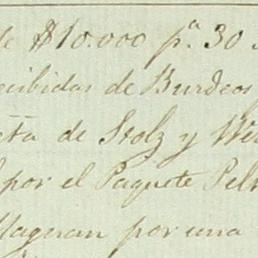 de $10.000 pª 30
cibidas de Burdeos
eta de Stolz y
por el Paquete
llaguran por una